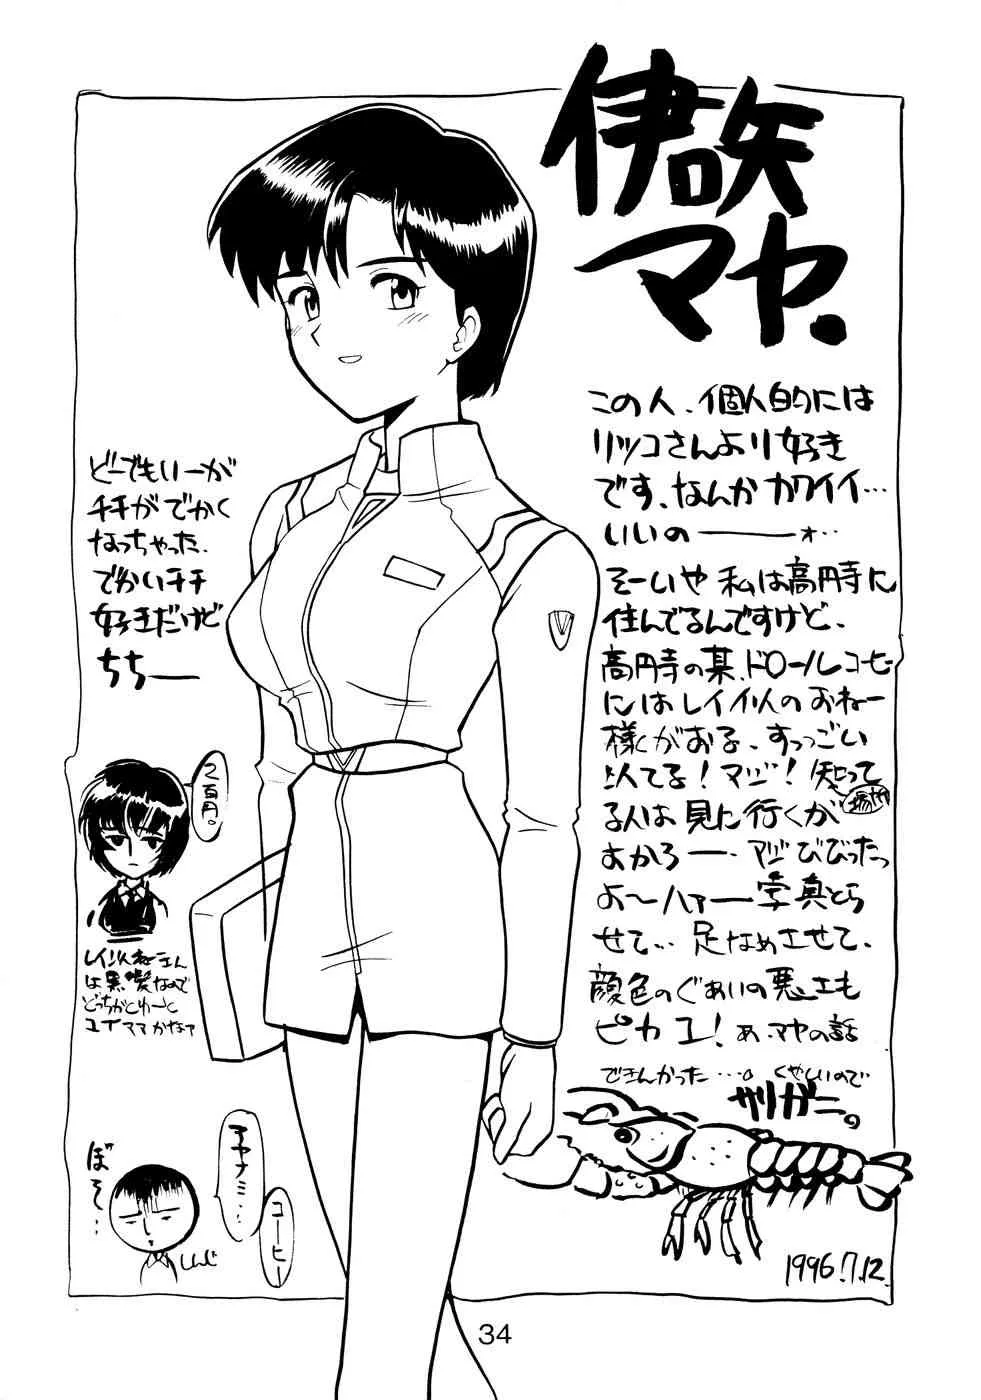 伊吹マヤ.
この人、個人的には
リツコさんより好き
です、なんかカワイイ…
いいの――ォ‥
そーいや 私は高円寺に
住んでるんですけど、
高円寺の某、ドロールコーヒー
にはレイ似のおねー
様がおる、すっっごい
似てる！マジ！知って
る人は見に行くが
場所
よかろー。マジびびったっ
よ〜ハァー写真とら
せて… 足なめさせて、
顔色のぐあいの悪さも
ピカ ユ！あ、マヤの話
できんかった…。くやしいので
ザリガニ。
どーでもいーが
チチがでかく
なっちゃった.
でかいチチ
好きだけど
ちちー
2百円。
レイ似ねーさん
は黒髪なので
どっちかとゆーと
ユイママかなァ
ぼそ‥
アヤナミ…
コーヒー
しんじ
1996.7.12.
34